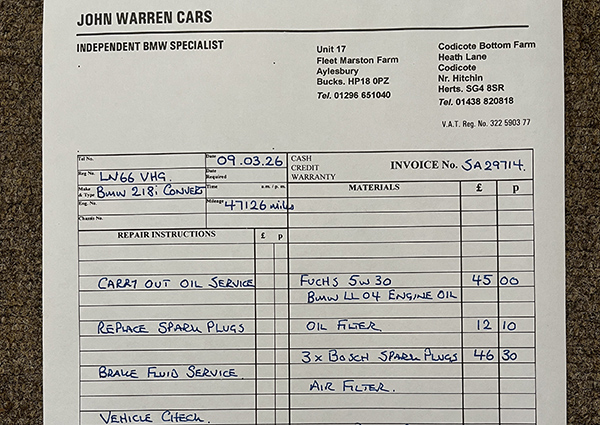 JOHN WARREN CARS
INDEPENDENT BMW SPECIALIST
Unit 17
Fleet Marston Farm
Aylesbury
Bucks. HP18 0PZ
Tel. 01296 651040
Codicote Bottom Farm
Heath Lane
Codicote
Nr. Hitchin
Herts. SG4 8SR
Tel. 01438 820818
V.A.T. Reg. No. 322 5903 77
Tel No.
Date 09.03.26
CASH
CREDIT
WARRANTY
INVOICE No. SA29714.
Reg No. LN66 VHG.
Date Required
Make & Type BMW 218i CONVERT
Time a.m. / p.m.
Eng. No.
Mileage 47126 mils
Chassis No.
MATERIALS £ p
REPAIR INSTRUCTIONS £ p
CARRY OUT OIL SERVICE
FUCHS 5W30 45 00
BMW LL04 ENGINE OIL
REPLACE SPARK PLUGS
OIL FILTER 12 10
3 x BOSCH SPARK PLUGS 46 30
BRAKE FLUID SERVICE.
AIR FILTER.
VEHICLE CHECK.